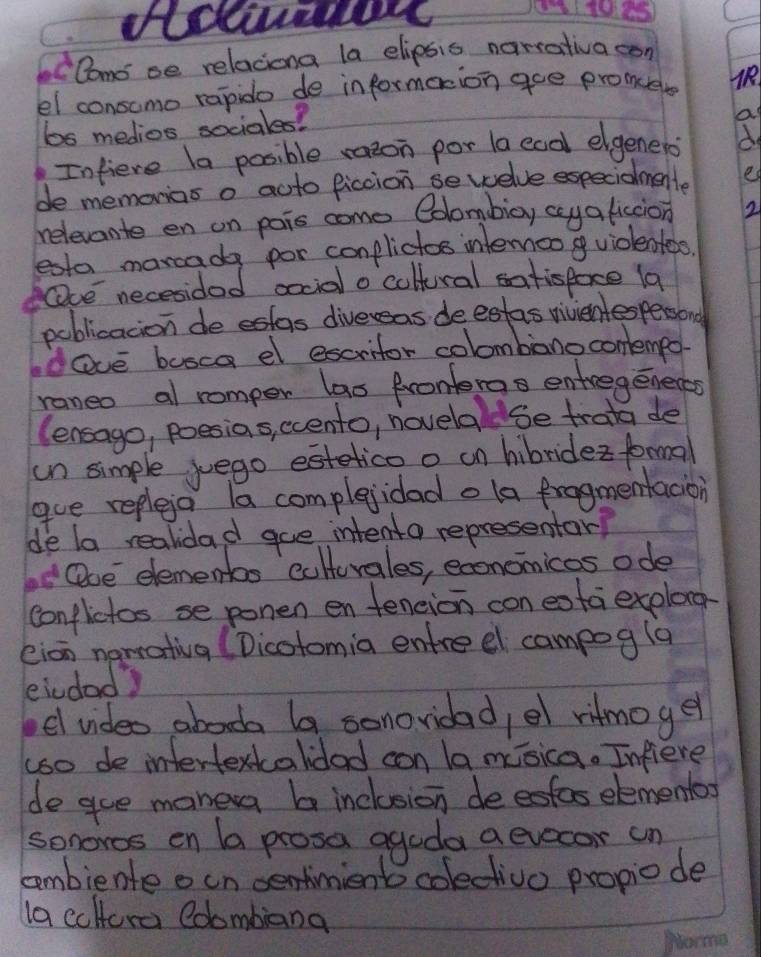 14 10 25
¿Comó se relaciona la elipsis narrativa con
el consumo rápido de información que promueve
los medios sociales?
• Infiere la posible razón por la cual el genero
de memorias o auto ficción se vuelve especialmente
relevante en un país como Colombia, cuya ficcion
esta marcada por conflictos internos y violentos.
¿Qué necesidad social o cultural satisface la
publicación de estas diversas de estas vivientes persona
• ¿Qué busca el escritor colombiano contempo-
raneo al romper las fronteras entre géneros
(ensayo, poesias, cuento, novela ¿Se trata de
un simple juego estetico o un hibridez formal
que refleja la complejidad o la fragmentación
de la realidad que intenta representar?
• ¿Qué elementos culturales, económicos o de
conflictos se ponen en tención con esta explora-
ción narrativa (Dicotomia entre el campo y la
ciudad)
• el video aborda la sonoridad, el ritmo y el
uso de intertextualidad con la música. Infiere
de que manera la inclusión de estos elementos
sonoros en la prosa ayuda a evocar un
ambiente o un sentimiento colectivo propio de
la cultura Colombiana
Norma